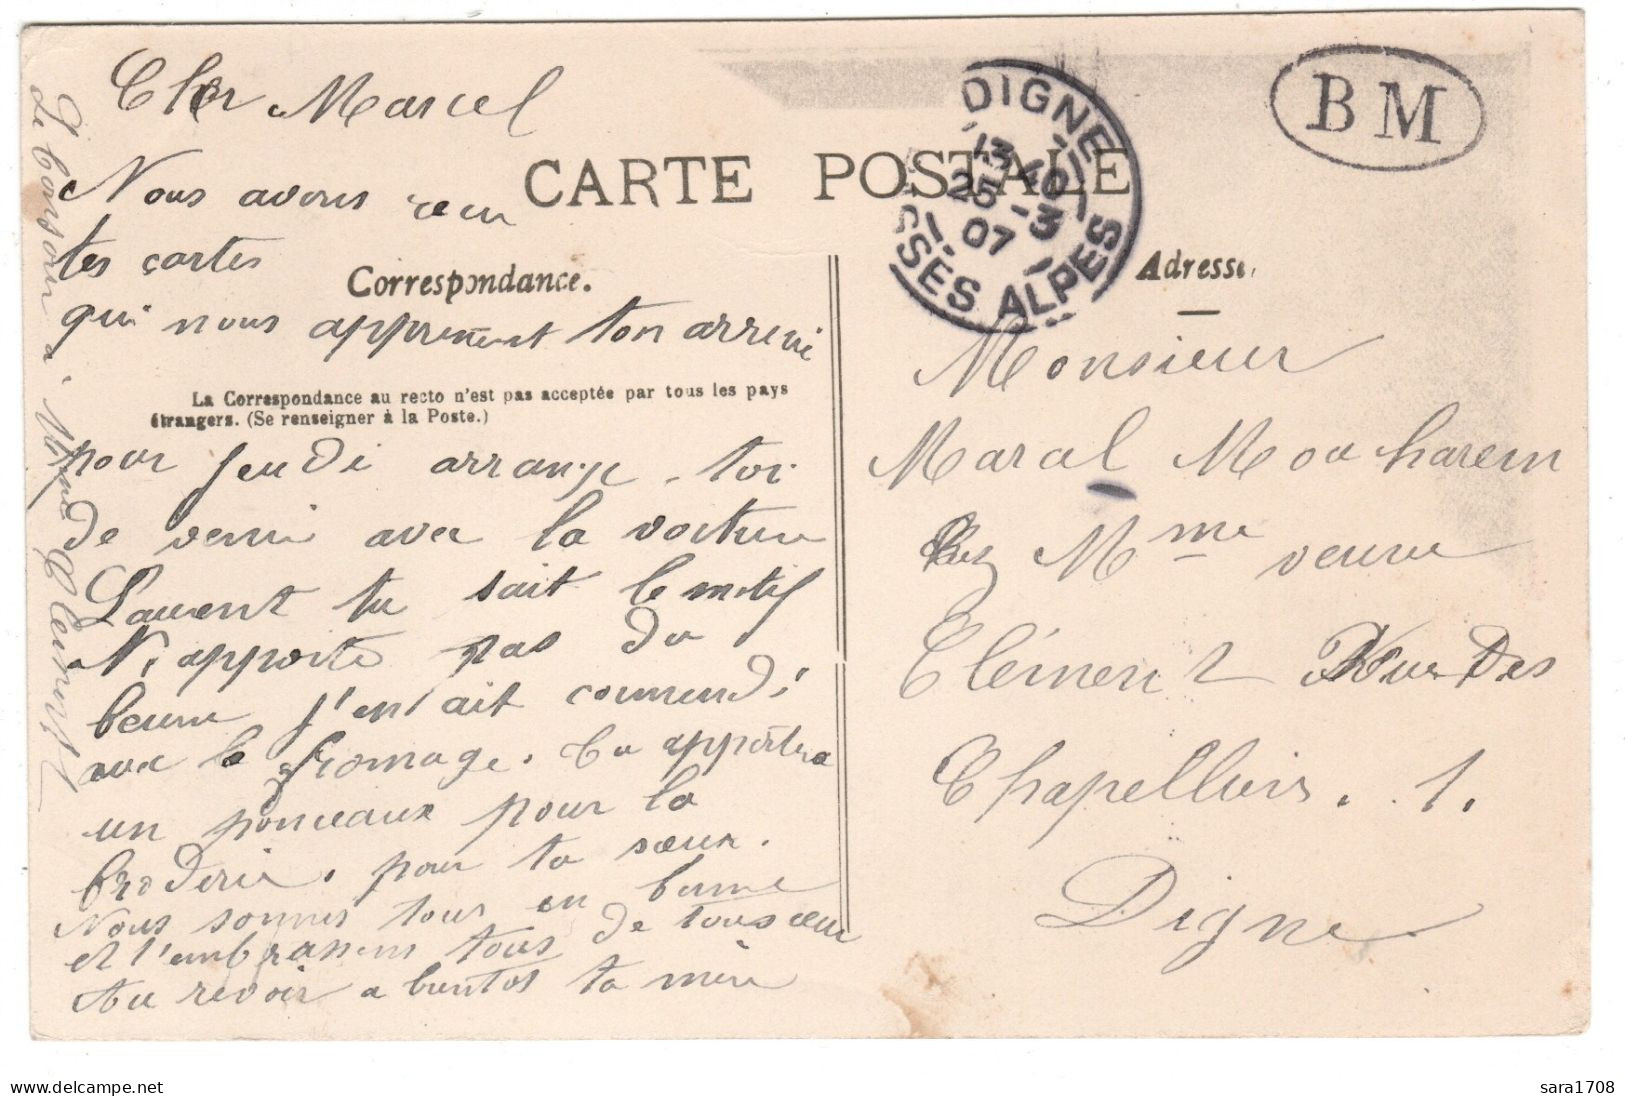 Cher Marcel
Nous avons recu
tes cartes
qui nous apprenent ton arrivé
pour jeudi arrange-toi
de venir avec la voiture
Laurent tu sait le motif
N'apporte pas du
beurre j'en ait commendé
avec le fromage. Tu apportera
un ponceaux pour la
broderie. pour ta sœur.
Nous sommes tous en bonne
et t'embrassens tous de tous cœur
Au revoir a bientos ta mère
Le bonsoir à Mme Clément
CARTE POSTALE
Correspondance.
La Correspondance au recto n'est pas acceptée par tous les pays
étrangers. (Se renseigner à la Poste.)
DIGNE
13 40
25 -3
07
SSES ALPES
BM
Adresse
Monsieur
Marcel Mouharem
Chez Mme veuve
Clément Rue Des
Chapelliers. 1.
Digne
sara1708